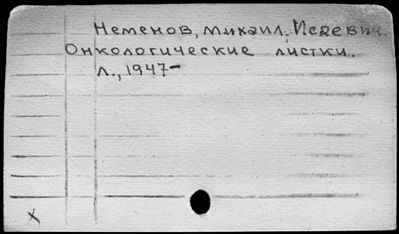 Неменов, Михаил Исаевич.
Онкологические листки.
Л., 1947-
x